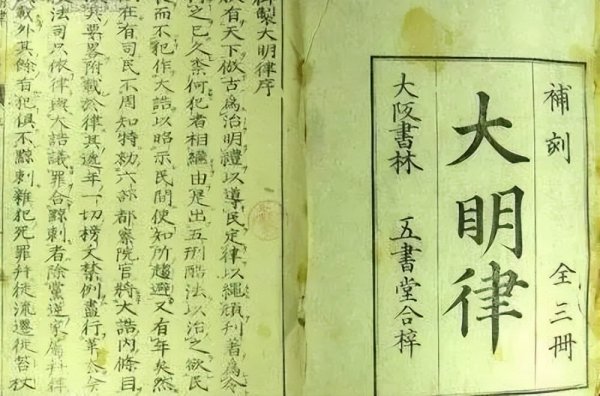 補刻 全三冊
大明律
大阪書林 五書堂合梓
御製大明律序
朕有天下倣古爲治明禮以導民定律以繩頑刋著爲令
之已久柰何犯者相繼由是出五刑酷法以治之欲民
而不犯作大誥以昭示民間使知所趨避又有年矣然
在有司民不周知特勅六部都察院官將大誥內條目
其要畧附載於律其逓年一切榜文禁例盡行革
法司只依律與大誥議罪合黥刺者除黨逆家屬幷律
載外其餘有犯俱不黥刺雜犯死罪幷徒流遷徙笞杖